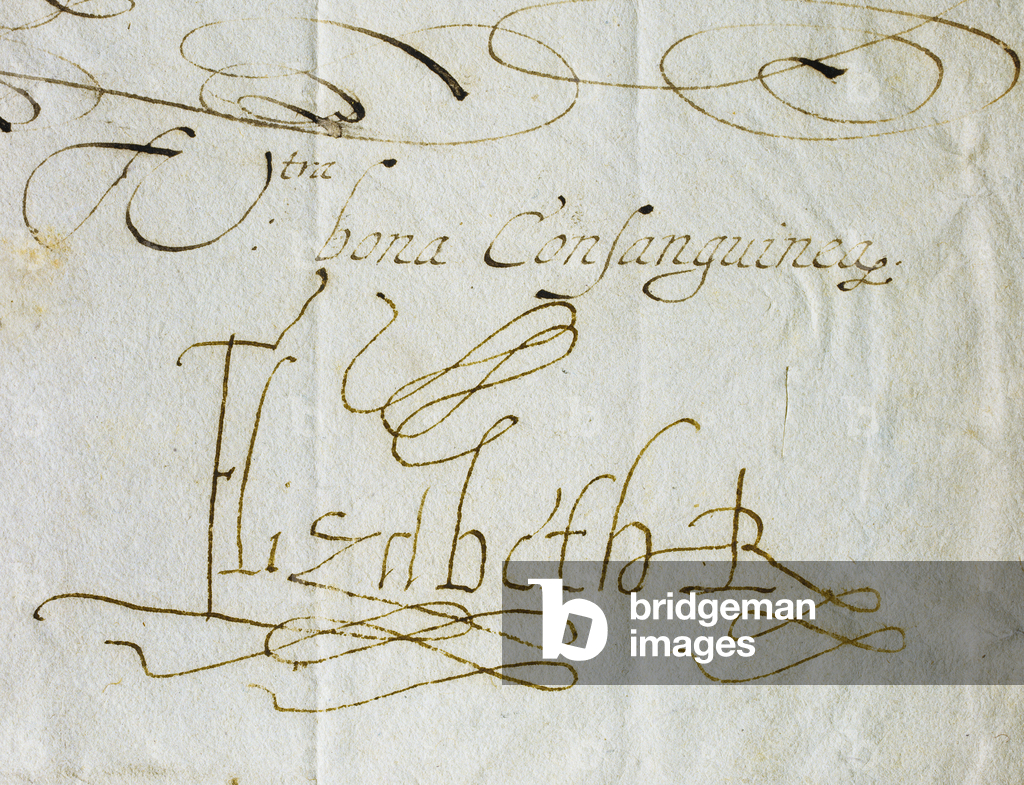 Vtra
bona Consanguinea
Elizabeth R
bridgeman
images